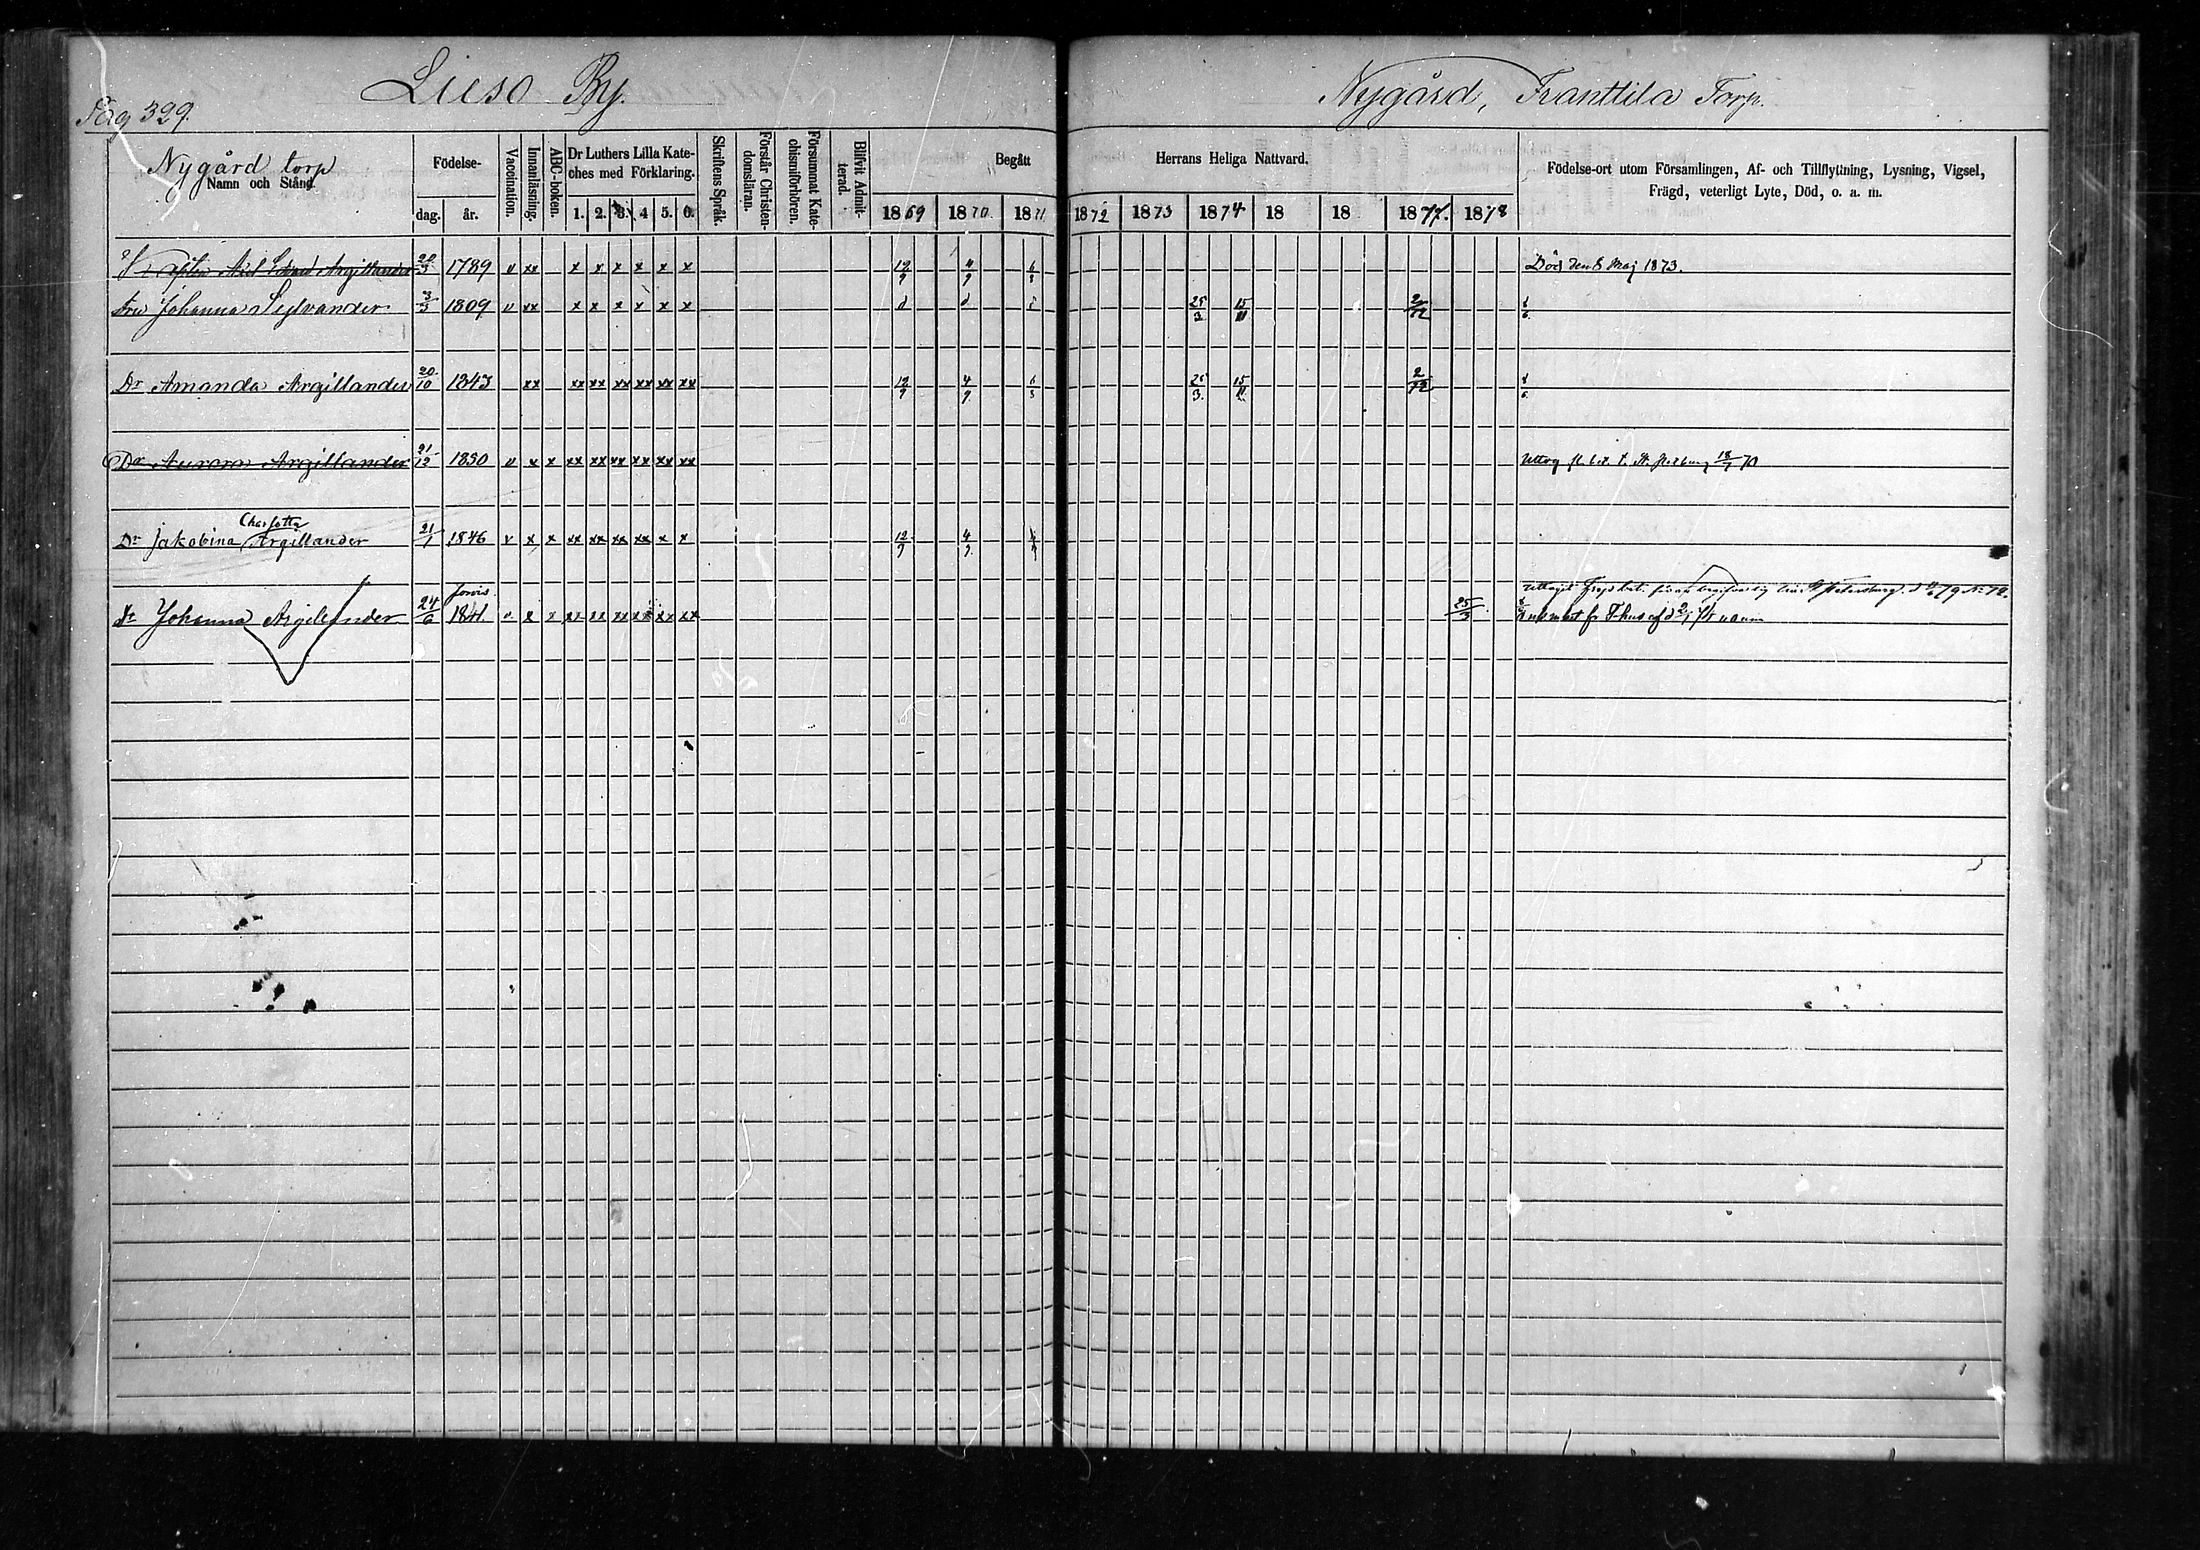 Lieso By.
Nygård, Franttila Torp.
Pag 329.
Nygård torp
Namn och Stånd.
Födelse-
dag. år.
Vaccination.
Innanläsning.
ABC-boken.
Dr Luthers Lilla Kate-
ches med Förklaring.
1. 2. 3. 4 5. 6.
Skriftens Språk.
Förstår Christen-
domsläran.
Försummat Kate-
chismiförhören.
Blifvit Admit-
terad.
Begått Herrans Heliga Nattvard.
1869 1870. 1871. 1872 1873 1874 18 18 1877. 1878
Födelse-ort utom Församlingen, Af- och Tillflyttning, Lysning, Vigsel,
Frägd, veterligt Lyte, Död, o. a. m.
Axel Edvard Argillander 20/3 1789 v xx x x x x x x 12/9 4/9 6/8 Död den 8 Maj 1873.
Fru Johanna Sylvander 3/3 1809 v xx x x x x x x d d d 25/3 15/11 2/12 8/6
Dr Amanda Argillander 20/10 1843 xx xx xx xx xx xx xx 12/9 4/9 6/8 25/3 15/11 2/12 8/6
Dr Aurora Argillander 21/12 1850 v x x xx xx xx xx xx xx 18/7 70
Charlotta
Dr Jakobina Argillander 21/1 1846 v x x xx xx xx xx x x 12/9 4/9.
Dr Johanna Argillander 24/6 1841. v. x x xx xx xx xx xx xx 25/3